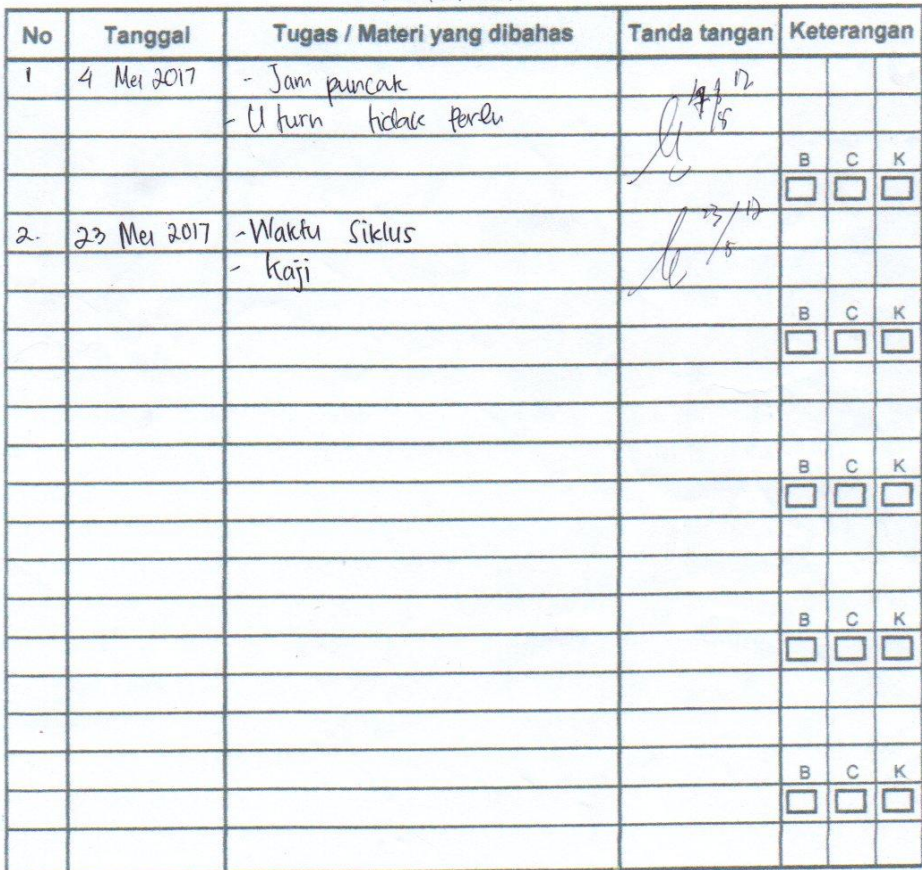 No Tanggal Tugas / Materi yang dibahas Tanda tangan Keterangan
1 4 Mei 2017 - Jam puncak
- U turn tidak perlu
B C K
2. 23 Mei 2017 - Waktu Siklus
- Kaji
23/5 17
B C K
B C K
B C K
B C K